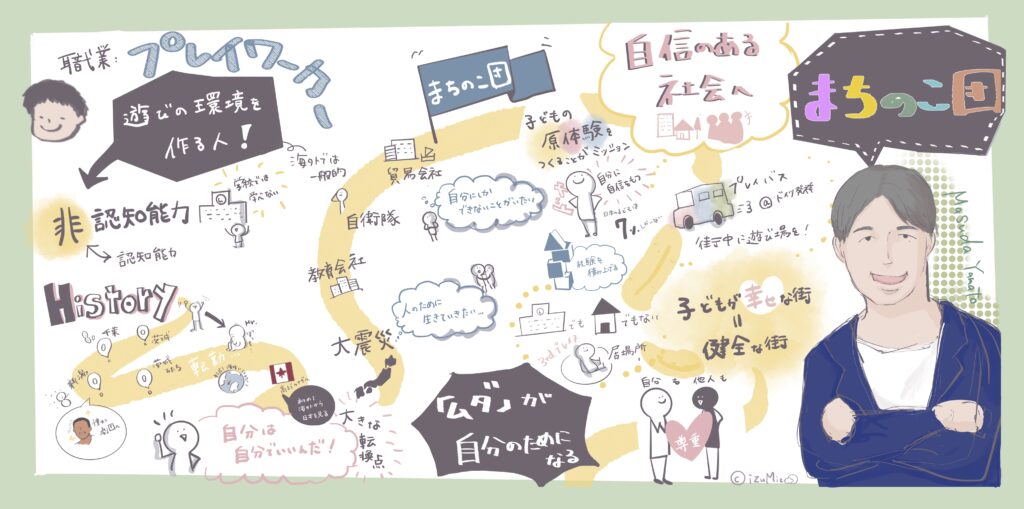 職業:
プレイワーカー
遊びの環境を
作る人!
海外では
一般的
学校では
学べない
非認知能力
認知能力
History
千葉
茨城
新潟
転勤…
自分は
自分でいいんだ!
大きな
転換点
大震災
教育会社
自衛隊
貿易会社
まちのこ団
自分にしか
できないことがしたい
人のために
生きていきたい…
「ムダ」が
自分のために
なる
子どもの
原体験を
つくることがミッション
自分に
自信をもつ
日本の子どもは
7%しかいない
体験を
積み上げる
でも
でもない
3rd place
居場所
自信のある
社会へ
プレイバス
@ドイツ発祥
街中に遊び場を!
子どもが幸せな街
=
健全な街
自分も 他人も
尊重
まちのこ団
Masuda Yamato
©izuMie